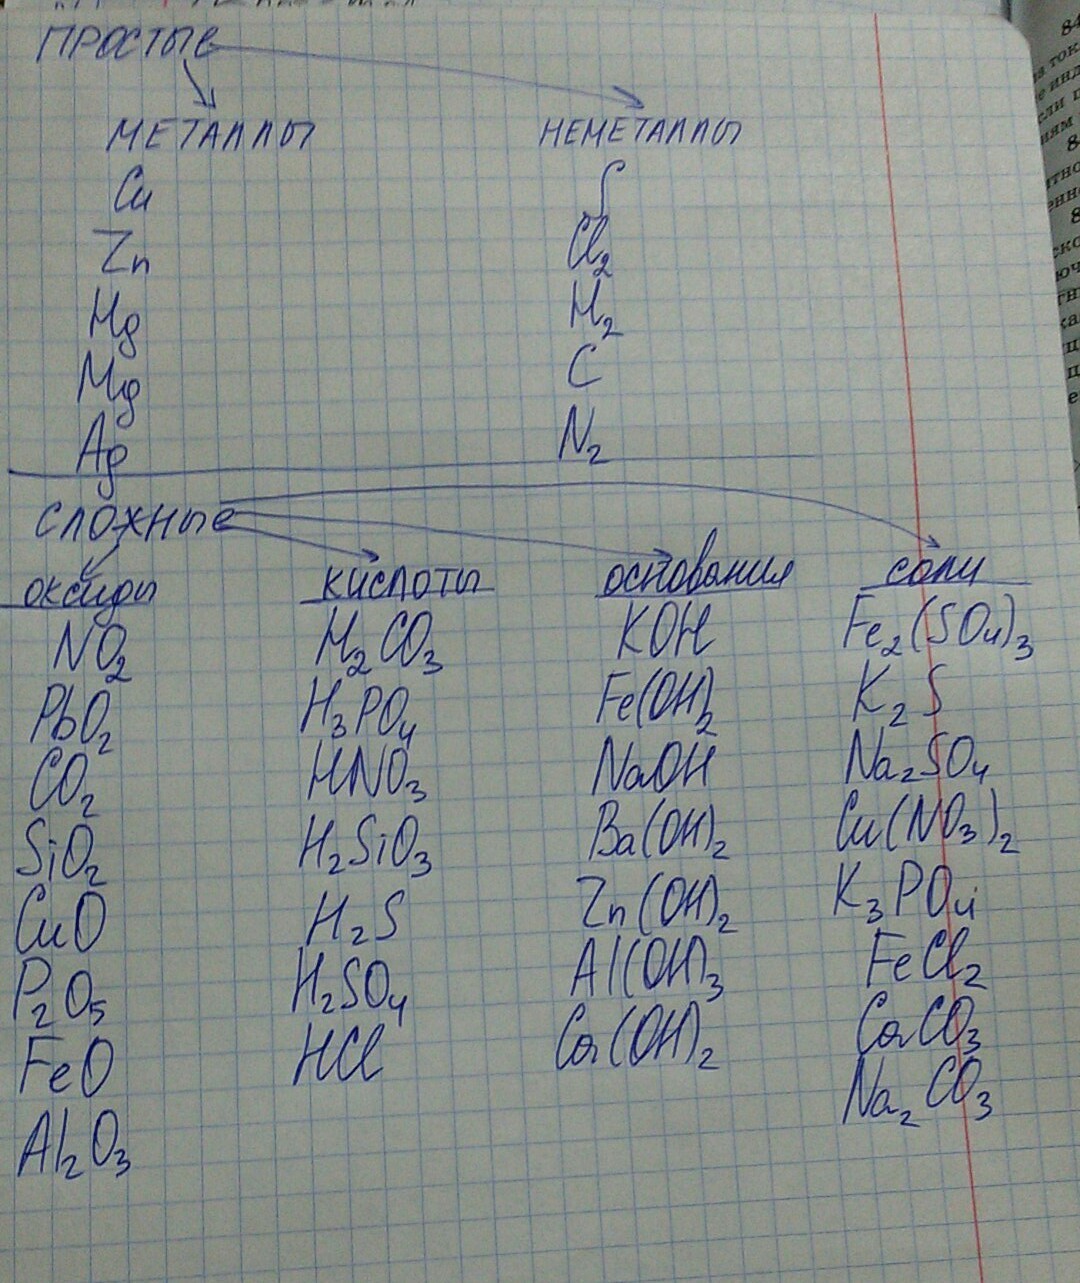 ПРОСТЫЕ
МЕТАЛЛЫ НЕМЕТАЛЛЫ
Cu S
Zn Cl₂
Hg H₂
Mg C
Ag N₂
СЛОЖНЫЕ
оксиды кислоты основания соли
NO₂ H₂CO₃ KOH Fe₂(SO₄)₃
PbO₂ H₃PO₄ Fe(OH)₂ K₂S
CO₂ HNO₃ NaOH Na₂SO₄
SiO₂ H₂SiO₃ Ba(OH)₂ Cu(NO₃)₂
CuO H₂S Zn(OH)₂ K₃PO₄
P₂O₅ H₂SO₄ Al(OH)₃ FeCl₂
FeO HCl Ca(OH)₂ CaCO₃
Al₂O₃ Na₂CO₃